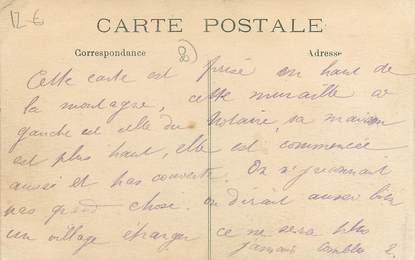 12 €
CARTE POSTALE
Correspondance
8)
Adresse
Cette carte est prise en haut de
la montagne, cette muraille a
gauche est celle du Notaire sa maison
est plus haut, elle est commencée
aussi et pas couverte. On n'y
pas grand chose. on dirait aussi bien
un village étranger ce ne sera plus
jamais